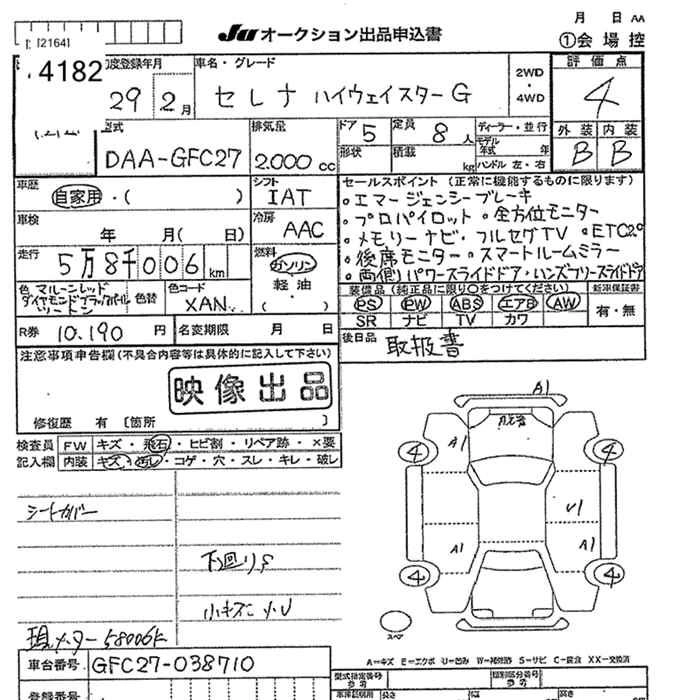 月 日 AA
[2164]
JU オークション出品申込書
①会場控
4182
度登録年月
29 2月
車名・グレード
セレナ ハイウェイスターG
2WD
・
4WD
評価点
4
型式
DAA-GFC27
排気量
2.000 cc
ドア 5
定員 8人
形状
積載 kg
ディーラー・並行
モデル年式 年式
ハンドル 左・右
外装 内装
B B
車歴
自家用・( )
シフト
IAT
車検
年 月( 日)
冷房
AAC
走行
5万8千006km
燃料
ガソリン
軽油
( )
色 マルーンレッド
ダイヤモンドブラックパール
ツートン
色替
色コード
XAN
R券 10.190 円
名変期限 月 日
セールスポイント(正常に機能するものに限ります)
・エマージェンシーブレーキ
・プロパイロット ・全方位モニター
・メモリーナビ・フルセグTV ・ETC2.0
・後席モニター・スマートルームミラー
・両側パワースライドドア・ハンズフリースライドドア
装備品(純正品に限り○をつけてください)
PS PW ABS エアB AW
SR ナビ TV カワ
新車保証書
有・無
後日品 取扱書
注意事項申告欄(不具合内容等は具体的に記入して下さい)
映像出品
修復歴 有 〔箇所 〕
検査員
記入欄
FW キズ・飛石・ヒビ割・リペア跡・×要
内装 キズ・汚れ・コゲ・穴・スレ・キレ・破レ
シートカバー
下回りS
小キズ 小U
現メーター58006k
A1
飛石
A1
4
4
U1
A1
A1
4
4
スペア
A=キズ E=エクボ U=凹み W=補修跡 S=サビ C=腐食 XX=交換済
車台番号 GFC27-038710
登録番号
型式指定番号
類別区分番号
参考
長さ
幅
高さ